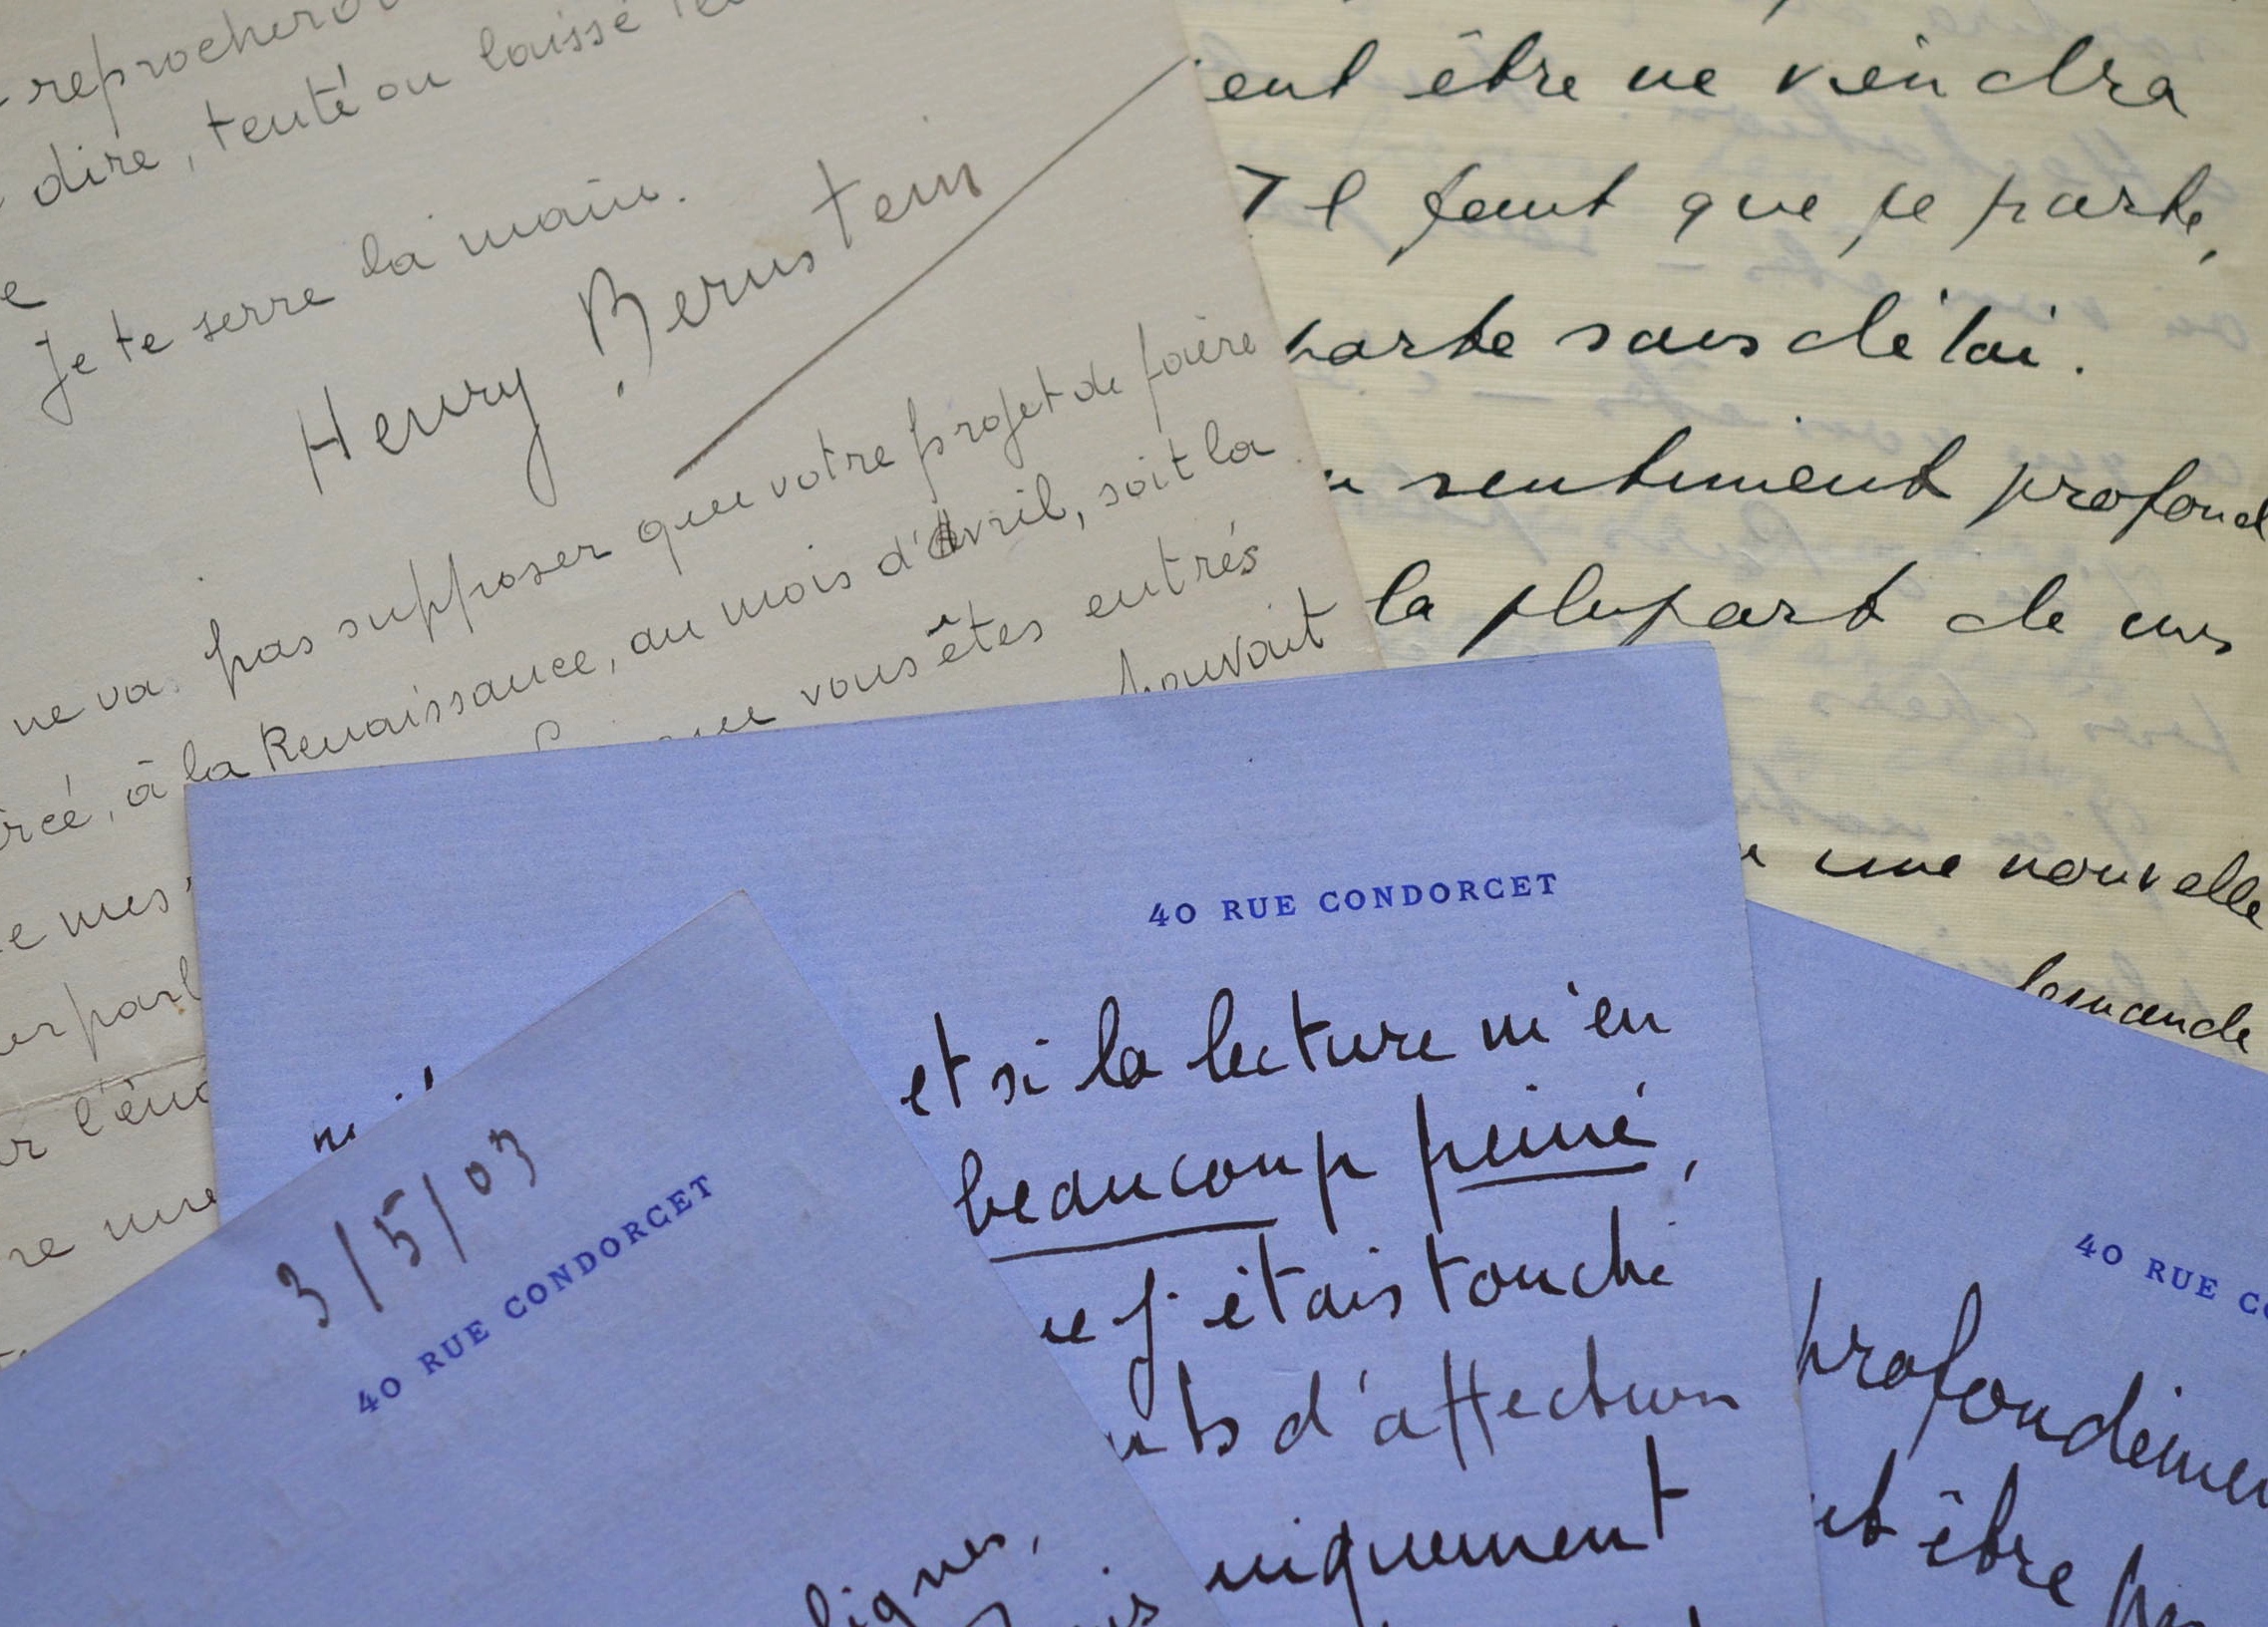 reprochero
dire, tenté ou laissé
e
Je te serre la main.
Henry Bernstein
ne va pas supposer que votre projet de faire
à la Renaissance, au mois d'Avril, soit la
vous êtes entrés
pouvait
e mes
parl
r l'én
re une
ent être ne viendra
Il faut que je parte,
parte sans délai.
sentiment profond
la plupart de mes
une nouvelle
demande
40 RUE CONDORCET
et si la lecture m'en
beaucoup peiné,
ue j'étais touché
nts d'affection
niquement
3/5/03
40 RUE CONDORCET
lignes,
is
40 RUE CO
profondémen
et être